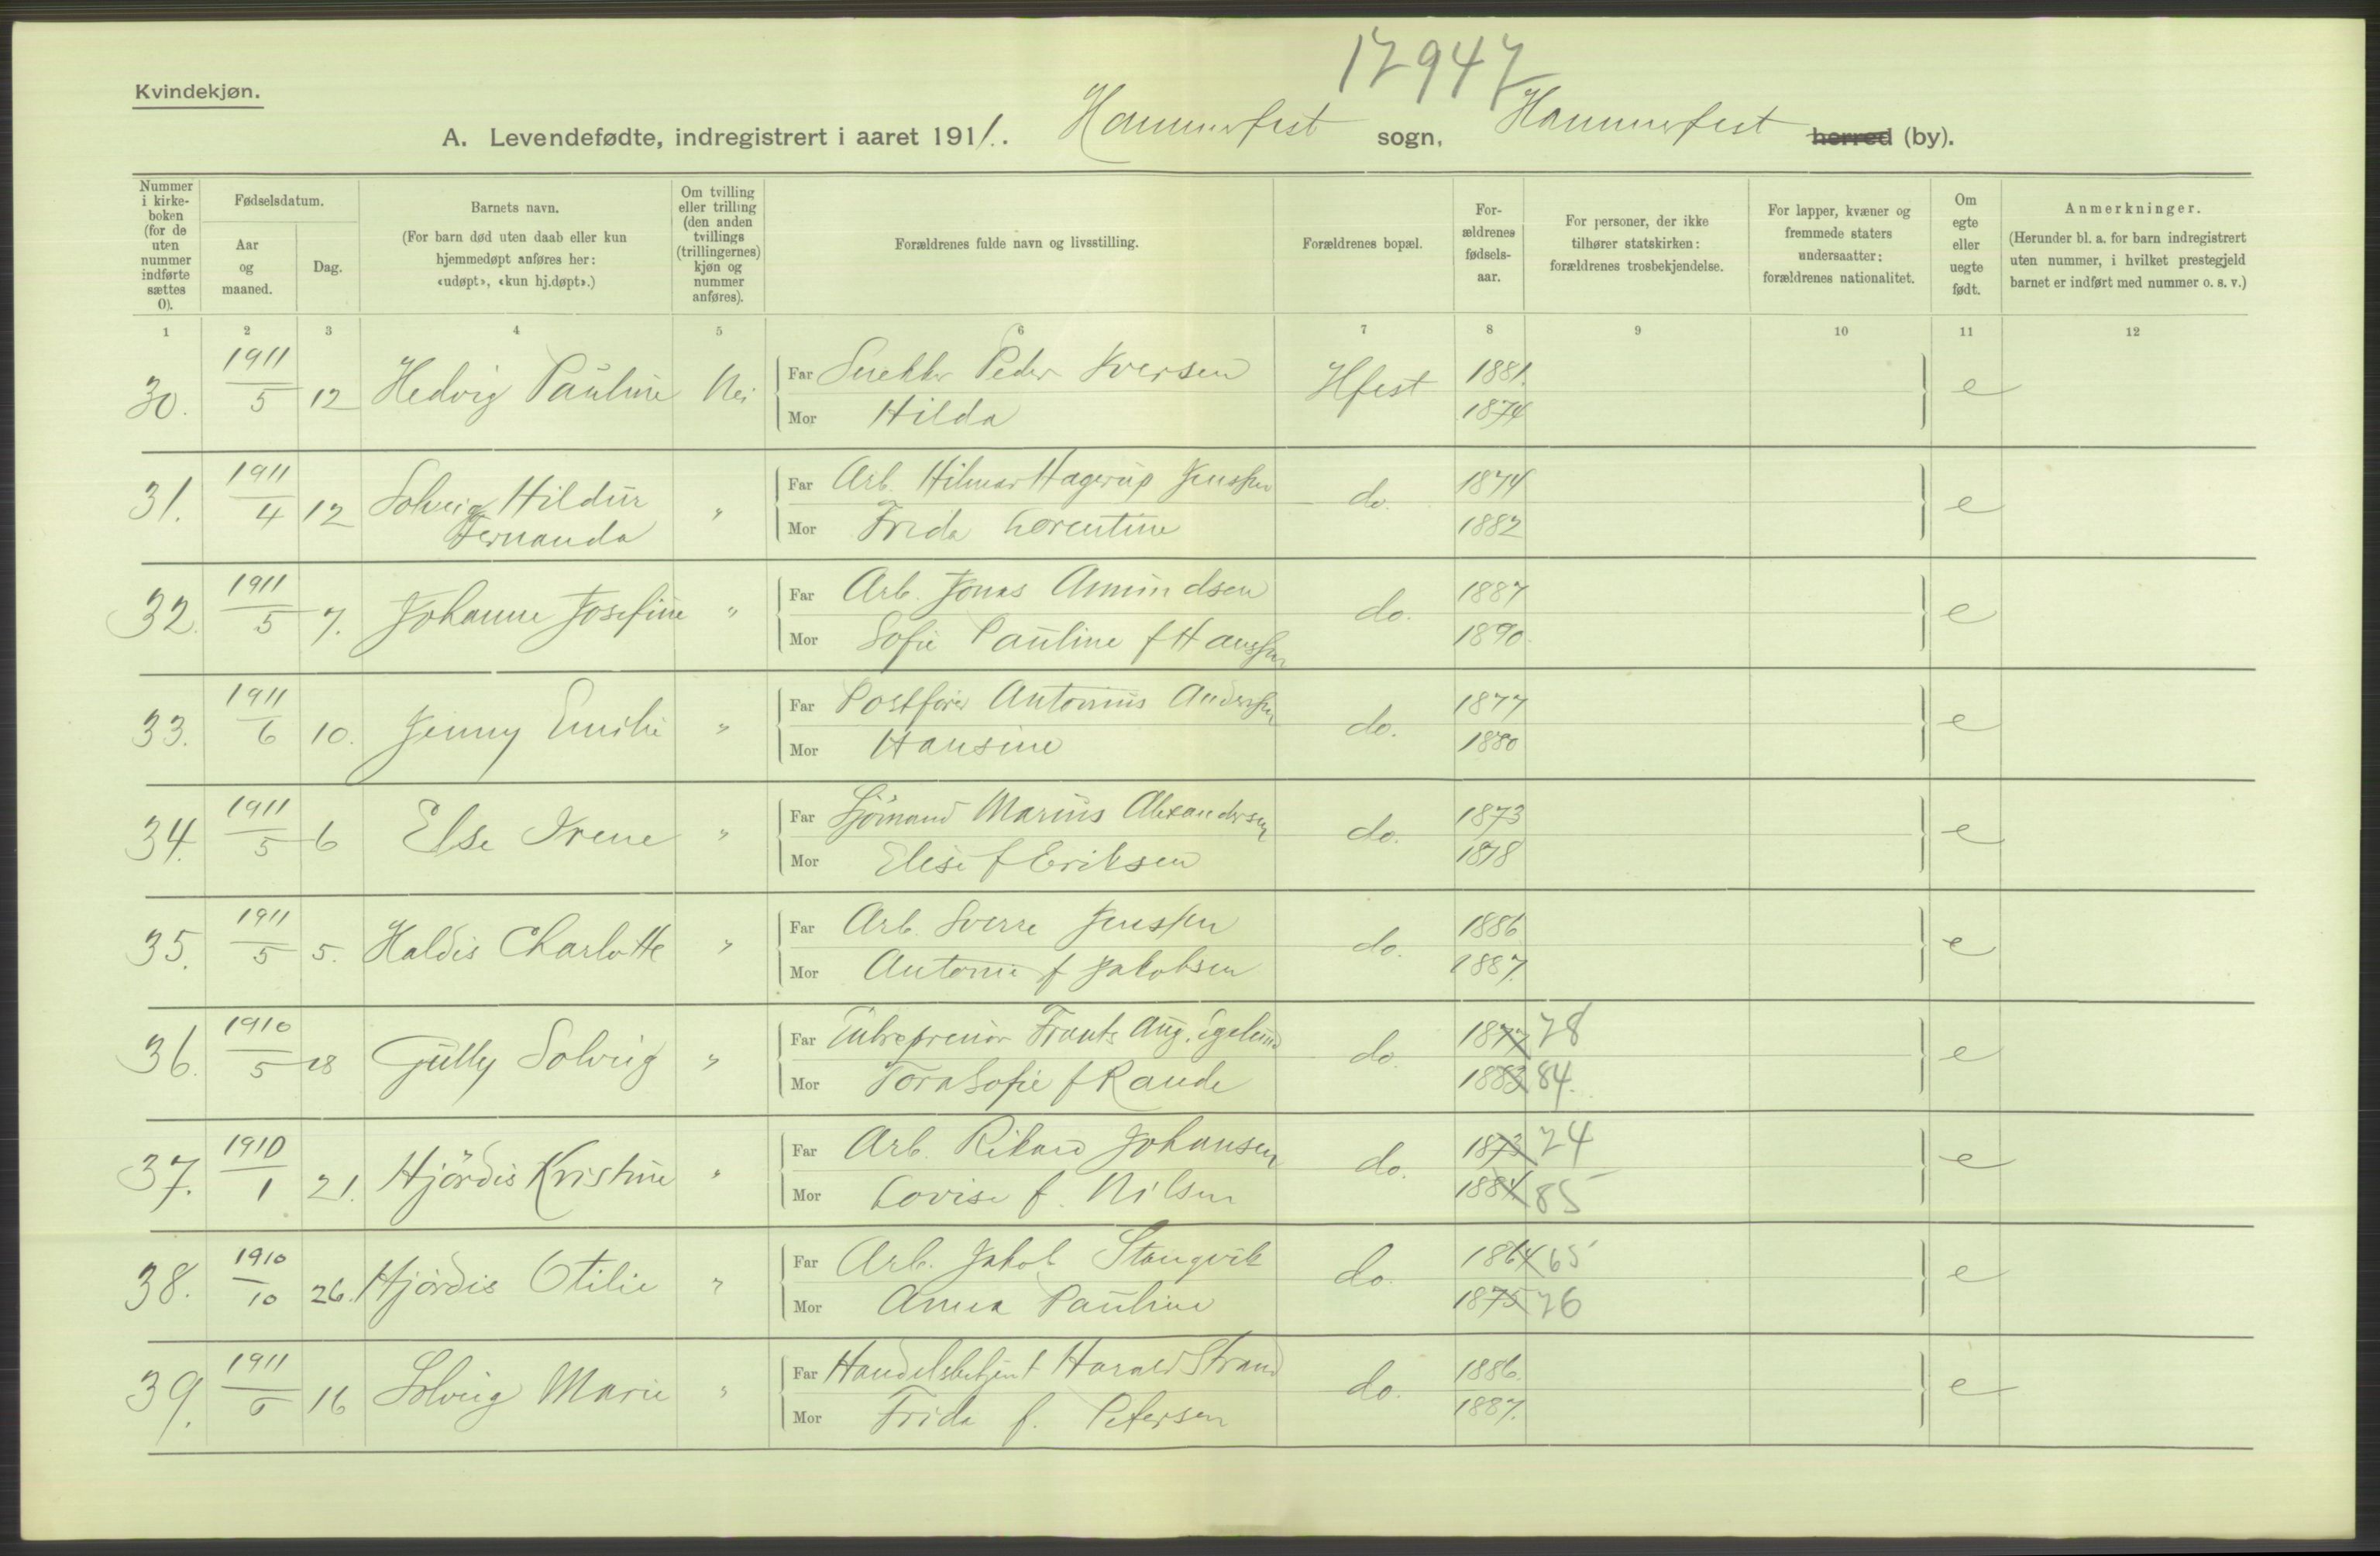 17947
Kvindekjøn.
A. Levendefødte, indregistrert i aaret 1911. Hammerfest sogn, Hammerfest herred (by).
Nummer i kirke-boken (for de uten nummer indførte sættes 0).
Fødselsdatum.
Aar og maaned.
Dag.
Barnets navn.
(For barn død uten daab eller kun hjemmedøpt anføres her: «udøpt», «kun hj.døpt».)
Om tvilling eller trilling (den anden tvillings (trillingernes) kjøn og nummer anføres).
Forældrenes fulde navn og livsstilling.
Forældrenes bopæl.
For-ældrenes fødsels-aar.
For personer, der ikke tilhører statskirken: forældrenes trosbekjendelse.
For lapper, kvæner og fremmede staters undersaatter: forældrenes nationalitet.
Om egte eller uegte født.
Anmerkninger.
(Herunder bl. a. for barn indregistrert uten nummer, i hvilket prestegjeld barnet er indført med nummer o. s. v.)
1 2 3 4 5 6 7 8 9 10 11 12
30. 1911/5 12 Hedvig Pauline Nei Far Snekker Peder Iversen Hfest 1881. e
Mor Hilda 1874
31. 1911/4 12 Solveig Hildur Fernanda " Far Arb. Hilmar Hagerup Jenssen do. 1874 e
Mor Frida Lorentine 1882
32. 1911/5 7. Johanne Josefine " Far Arb. Jonas Amundsen do. 1887 e
Mor Sofie Pauline f Hanssen 1890.
33. 1911/6 10. Jenny Emilie " Far Postfører Antonius Anderssen do. 1877 e
Mor Hansine 1880
34. 1911/5 6 Else Irene " Far Sjömand Marius Alexandersen do. 1873 e
Mor Elise f Eriksen 1878
35. 1911/5 5. Haldis Charlotte " Far Arb. Sverre Jenssen do. 1886 e
Mor Antonie f Jakobsen 1887.
36. 1910/5 28 Gully Solveig " Far Entreprenör Frants Aug. Egelund do. 1877 78 e
Mor Tora Sofie f Rande 1883 84.
37. 1910/1 21. Hjördis Kristine " Far Arb. Rikard Johansen do. 1873 74 e
Mor Lovise f. Nilsen 1884. 85
38. 1910/10 26. Hjördis Otilie " Far Arb. Jakob Stangvik do. 1864 65 e
Mor Anna Pauline 1875 76
39. 1911/6 16 Solveig Marie " Far Handelsbetjent Harald Strand do. 1886. e
Mor Frida f. Petersen 1887.